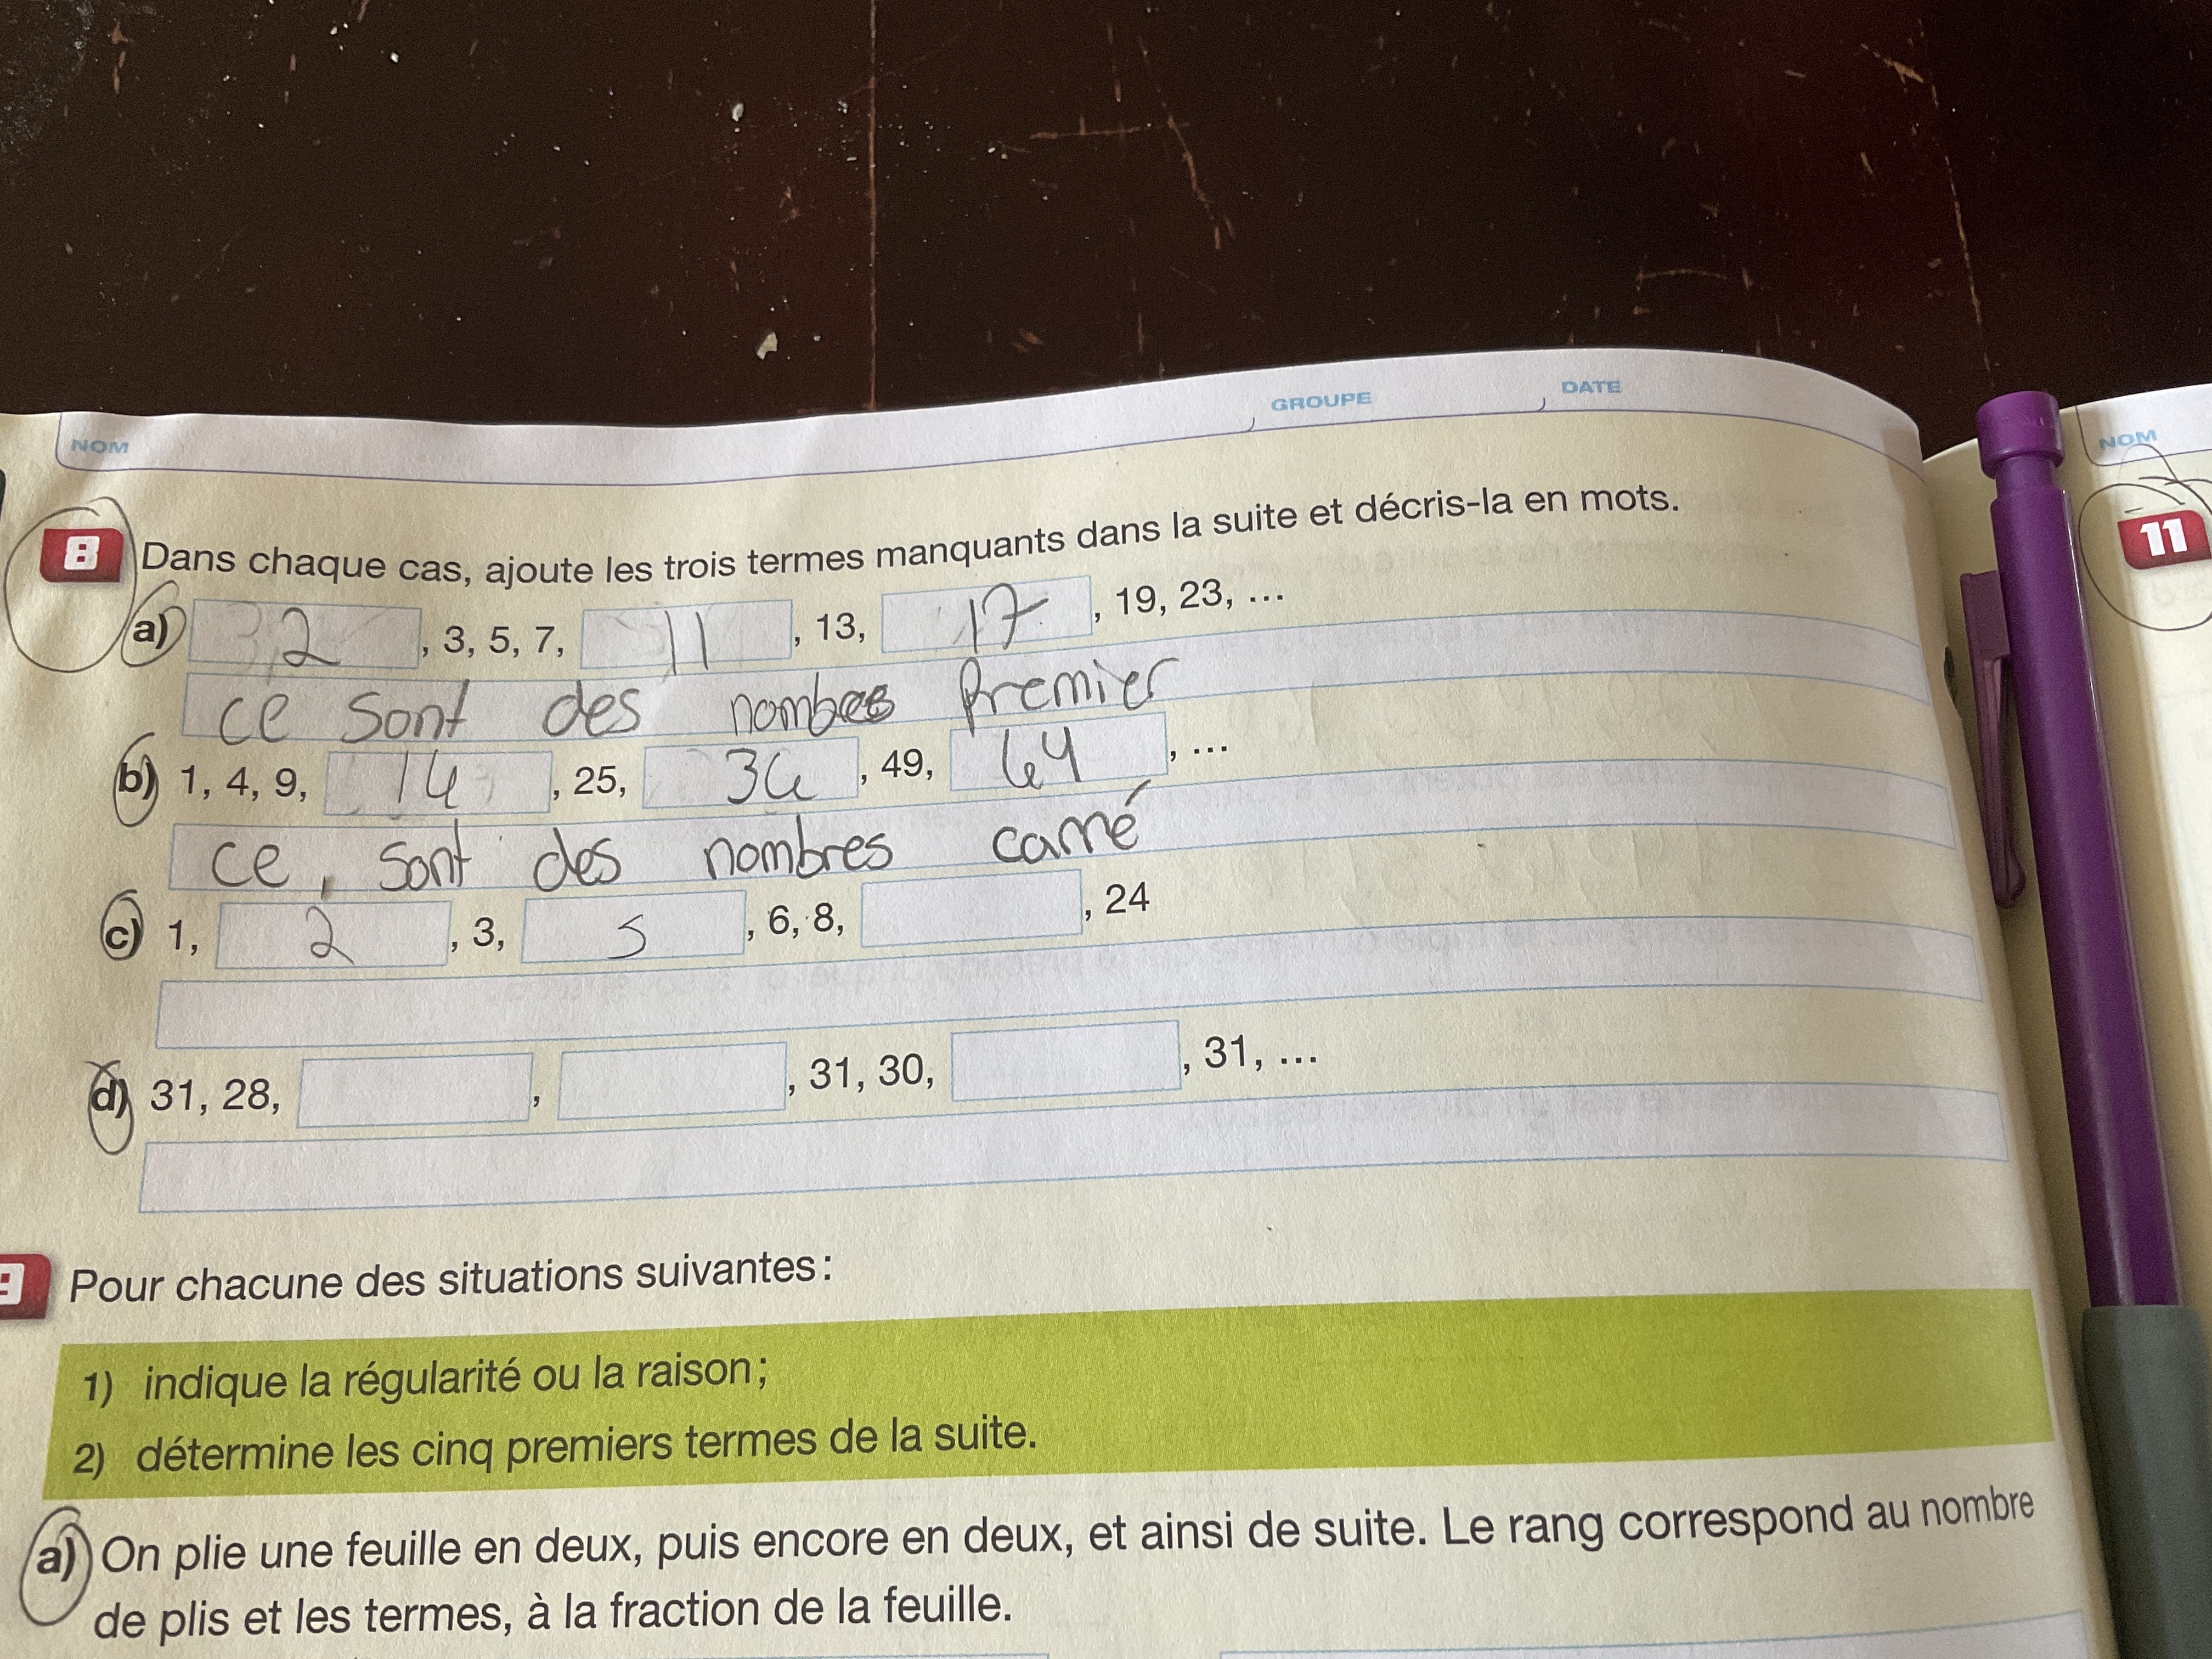 NOM GROUPE DATE
NOM
8 Dans chaque cas, ajoute les trois termes manquants dans la suite et décris-la en mots.
11
a) 2, 3, 5, 7, 11, 13, 17, 19, 23, ...
ce sont des nombres Premier
b) 1, 4, 9, 16, 25, 36, 49, 64, ...
ce, sont des nombres carré
c) 1, 2, 3, 5, 6, 8, , 24
d) 31, 28, , , 31, 30, , 31, ...
9 Pour chacune des situations suivantes :
1) indique la régularité ou la raison ;
2) détermine les cinq premiers termes de la suite.
a) On plie une feuille en deux, puis encore en deux, et ainsi de suite. Le rang correspond au nombre
de plis et les termes, à la fraction de la feuille.